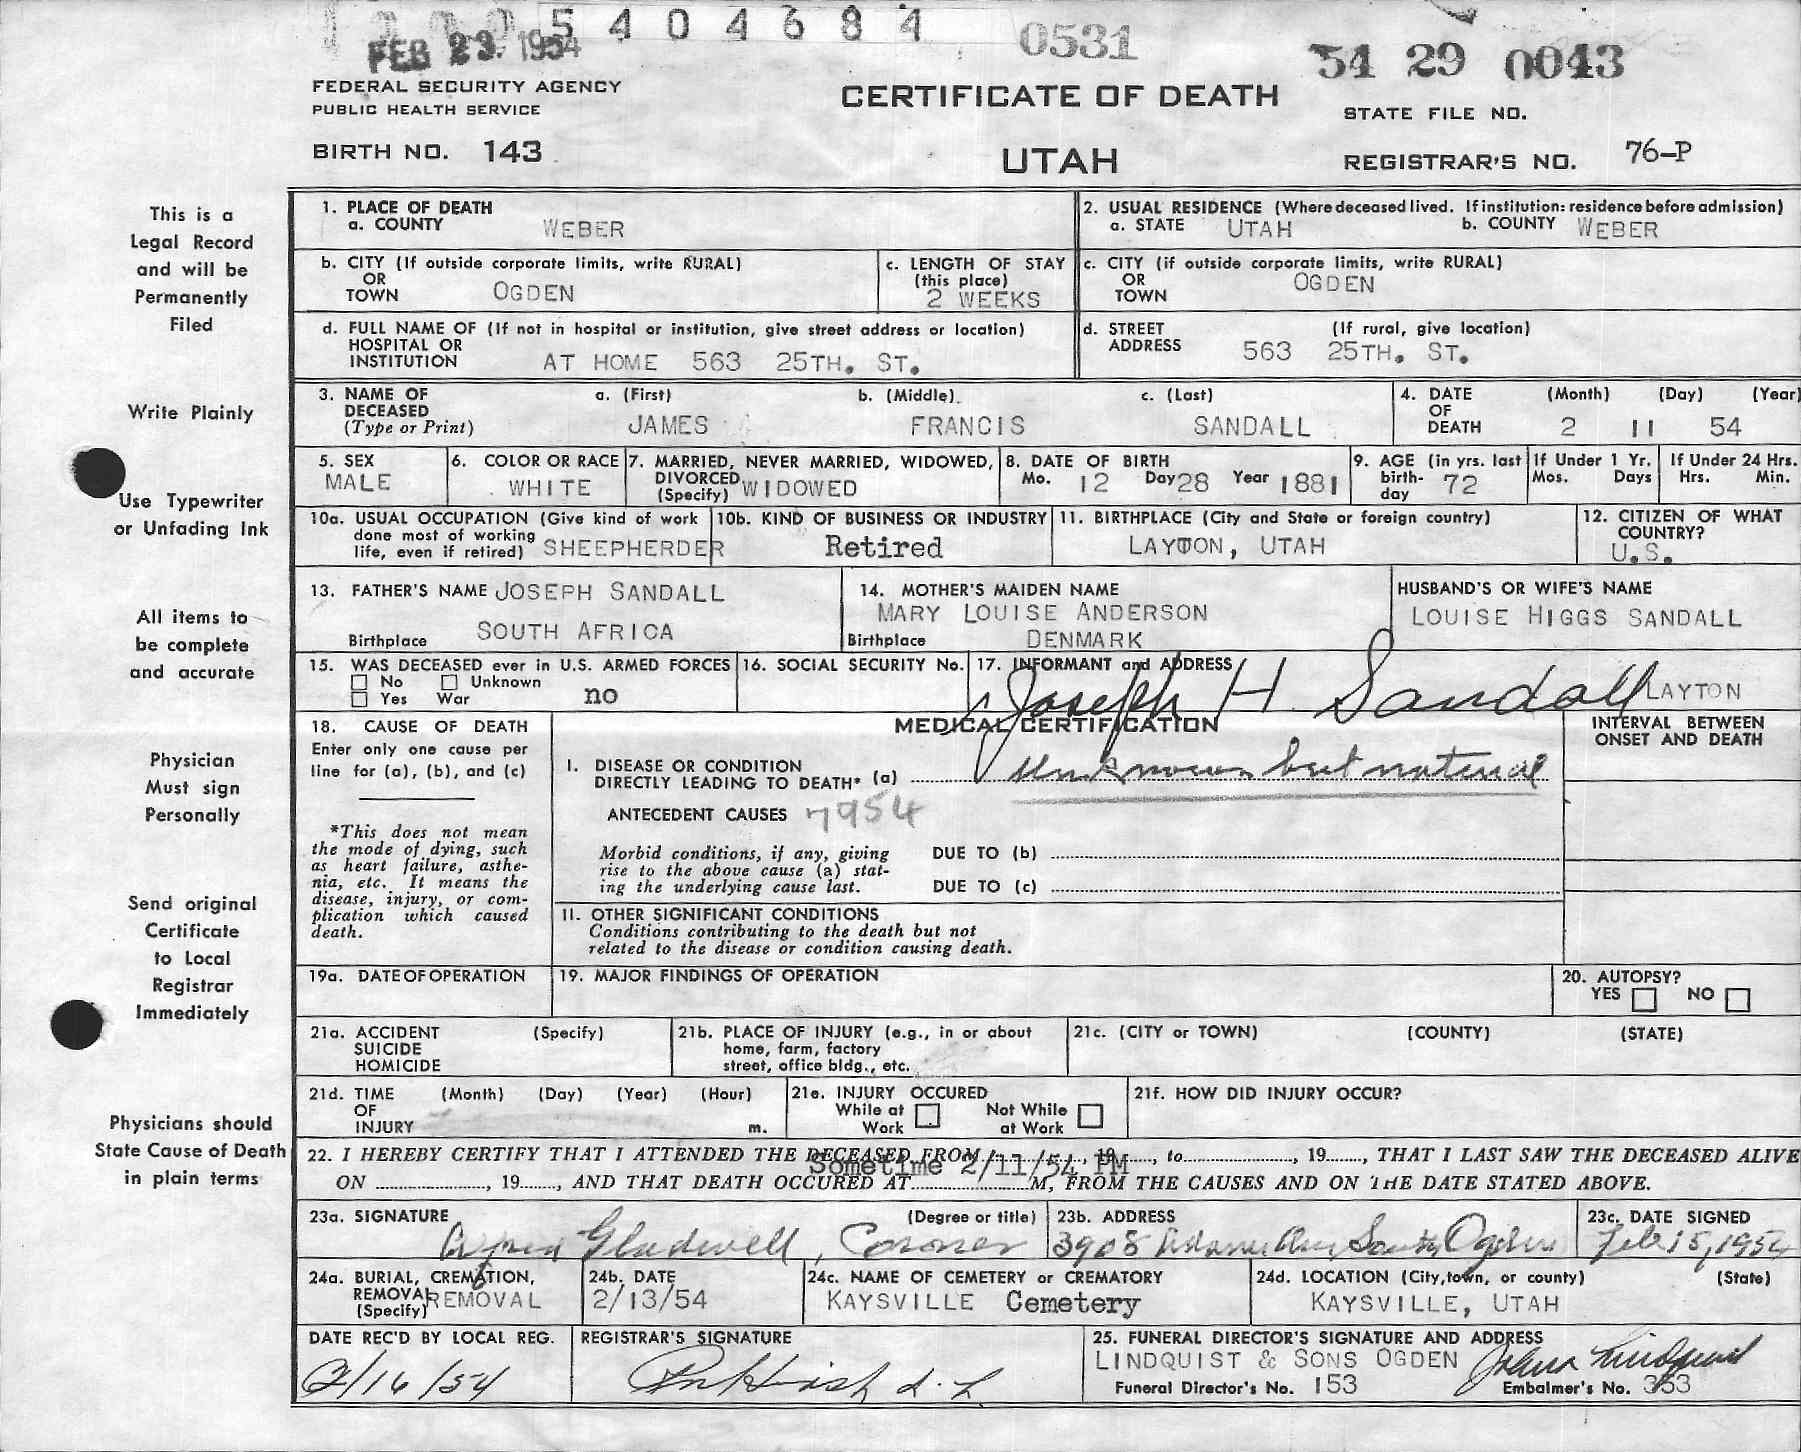 5 4 0 4 6 8 4
FEB 23. 1954
0531
54 29 0043
FEDERAL SECURITY AGENCY
PUBLIC HEALTH SERVICE
CERTIFICATE OF DEATH
STATE FILE NO.
BIRTH NO. 143
UTAH
REGISTRAR'S NO. 76-P
This is a
Legal Record
and will be
Permanently
Filed
Write Plainly
Use Typewriter
or Unfading Ink
All items to
be complete
and accurate
Physician
Must sign
Personally
Send original
Certificate
to Local
Registrar
Immediately
Physicians should
State Cause of Death
in plain terms
1. PLACE OF DEATH
a. COUNTY WEBER
2. USUAL RESIDENCE (Where deceased lived. If institution: residence before admission)
a. STATE UTAH b. COUNTY WEBER
b. CITY (If outside corporate limits, write RURAL)
OR
TOWN OGDEN
c. LENGTH OF STAY
(this place)
2 WEEKS
c. CITY (if outside corporate limits, write RURAL)
OR
TOWN OGDEN
d. FULL NAME OF (If not in hospital or institution, give street address or location)
HOSPITAL OR
INSTITUTION AT HOME 563 25TH. ST.
d. STREET (If rural, give location)
ADDRESS 563 25TH. ST.
3. NAME OF a. (First) b. (Middle) c. (Last)
DECEASED
(Type or Print) JAMES FRANCIS SANDALL
4. DATE (Month) (Day) (Year)
OF
DEATH 2 11 54
5. SEX
MALE
6. COLOR OR RACE
WHITE
7. MARRIED, NEVER MARRIED, WIDOWED,
DIVORCED
(Specify) WIDOWED
8. DATE OF BIRTH
Mo. 12 Day 28 Year 1881
9. AGE (in yrs. last
birth-
day 72
If Under 1 Yr.
Mos. Days
If Under 24 Hrs.
Hrs. Min.
10a. USUAL OCCUPATION (Give kind of work
done most of working
life, even if retired) SHEEPHERDER
10b. KIND OF BUSINESS OR INDUSTRY
Retired
11. BIRTHPLACE (City and State or foreign country)
LAYTON, UTAH
12. CITIZEN OF WHAT
COUNTRY?
U.S.
13. FATHER'S NAME JOSEPH SANDALL
Birthplace SOUTH AFRICA
14. MOTHER'S MAIDEN NAME
MARY LOUISE ANDERSON
Birthplace DENMARK
HUSBAND'S OR WIFE'S NAME
LOUISE HIGGS SANDALL
15. WAS DECEASED ever in U.S. ARMED FORCES
No Unknown
Yes War no
16. SOCIAL SECURITY No.
17. INFORMANT and ADDRESS
Joseph H Sandall LAYTON
18. CAUSE OF DEATH
Enter only one cause per
line for (a), (b), and (c)
*This does not mean
the mode of dying, such
as heart failure, asthe-
nia, etc. It means the
disease, injury, or com-
plication which caused
death.
MEDICAL CERTIFICATION
INTERVAL BETWEEN
ONSET AND DEATH
I. DISEASE OR CONDITION
DIRECTLY LEADING TO DEATH* (a) Unknown but natural
ANTECEDENT CAUSES 7954
Morbid conditions, if any, giving
rise to the above cause (a) stat-
ing the underlying cause last.
DUE TO (b)
DUE TO (c)
II. OTHER SIGNIFICANT CONDITIONS
Conditions contributing to the death but not
related to the disease or condition causing death.
19a. DATE OF OPERATION
19. MAJOR FINDINGS OF OPERATION
20. AUTOPSY?
YES NO
21a. ACCIDENT (Specify)
SUICIDE
HOMICIDE
21b. PLACE OF INJURY (e.g., in or about
home, farm, factory
street, office bldg., etc.
21c. (CITY or TOWN) (COUNTY) (STATE)
21d. TIME (Month) (Day) (Year) (Hour)
OF
INJURY m.
21e. INJURY OCCURED
While at Work
Not While at Work
21f. HOW DID INJURY OCCUR?
22. I HEREBY CERTIFY THAT I ATTENDED THE DECEASED FROM , 19 , to , 19 , THAT I LAST SAW THE DECEASED ALIVE
Sometime 2/11/54 PM
ON , 19 , AND THAT DEATH OCCURED AT M, FROM THE CAUSES AND ON THE DATE STATED ABOVE.
23a. SIGNATURE (Degree or title)
Gladwell, Coroner
23b. ADDRESS
3908 Adams Ave South Ogden
23c. DATE SIGNED
Feb 15, 1954
24a. BURIAL, CREMATION,
REMOVAL
(Specify) REMOVAL
24b. DATE
2/13/54
24c. NAME OF CEMETERY or CREMATORY
KAYSVILLE Cemetery
24d. LOCATION (City, town, or county) (State)
KAYSVILLE, UTAH
DATE REC'D BY LOCAL REG.
2/16/54
REGISTRAR'S SIGNATURE
25. FUNERAL DIRECTOR'S SIGNATURE AND ADDRESS
LINDQUIST & SONS OGDEN John Lindquist
Funeral Director's No. 153 Embalmer's No. 353